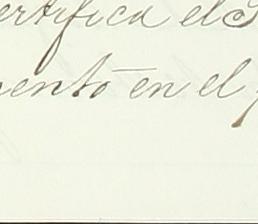 ertifica el S
mento en el